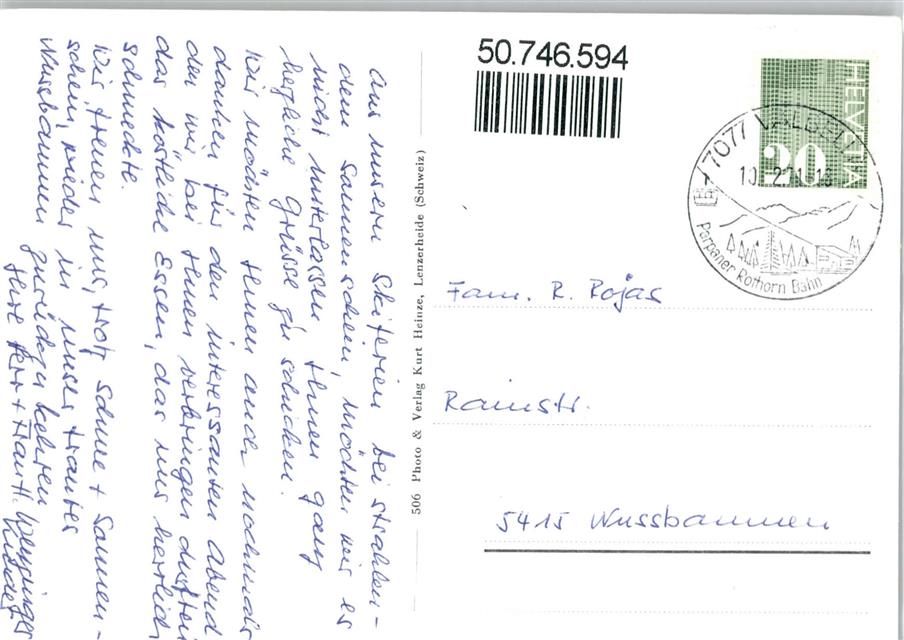 50.746.594
HELVETIA
20
7077 VALBELLA
10.2.71-18
Parpaner Rothorn Bahn
Aus unsern Skiferien bei strahlen-
dem Sonnenschein, möchten wir es
nicht unterlassen, Ihnen ganz
herzliche Grüsse zu schicken.
Wir möchten Ihnen auch nochmals
danken für den interessanten Abend
den wir bei Ihnen verbringen durften
das köstliche Essen, das uns herrlich
schmeckte.
Wir freuen uns, trotz Schnee + Sonnen-
schein, wieder in unser trautes
Nussbaumen zurückzukehren
Ihre Herr + Frau H.
506 Photo & Verlag Kurt Heinze, Lenzerheide (Schweiz)
Fam. R. Rojas
Rainstr.
5415 Nussbaumen